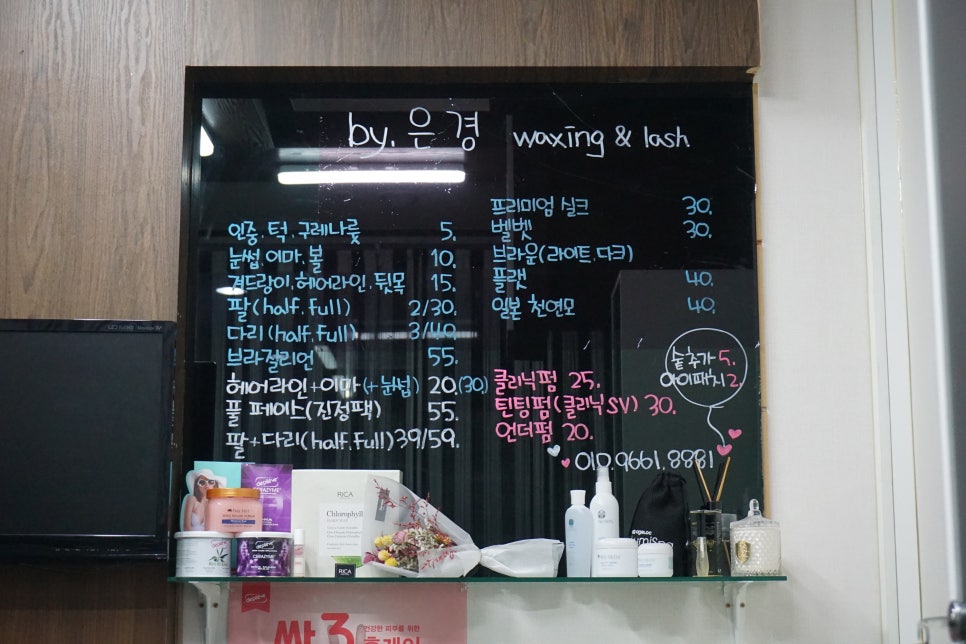 by. 은경 waxing & lash
인중. 턱. 구레나룻 5.
눈썹. 이마. 볼 10.
겨드랑이. 헤어라인. 뒷목 15.
팔(half. full) 2/30.
다리(half. full) 3/40.
브라질리언 55.
헤어라인+이마(+눈썹) 20.(30)
풀 페이스(진정팩) 55.
팔+다리(half. full) 39/59.
프리미엄 실크 30.
벨벳 30.
브라운(라이트. 다크)
플랫 40.
일본 천연모 40.
숱추가 5.
아이패치 2.
클리닉펌 25.
틴팅펌(클리닉SV) 30.
언더펌 20.
010.9661.8881
RICA
Chlorophyll
RICA
건강한 피부를 위한